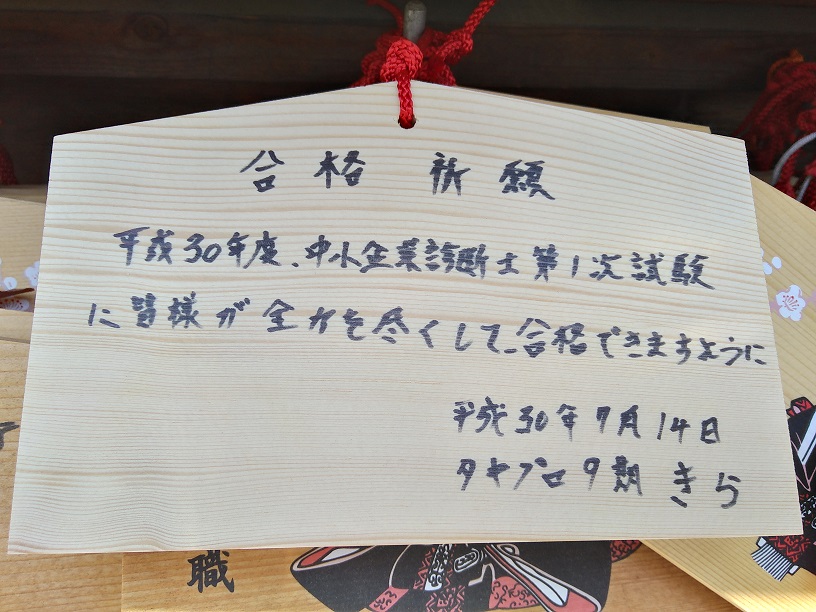 合格 祈願
平成30年度、中小企業診断士第1次試験
に皆様が全力を尽くして、合格できますように
平成30年7月14日
タキプロ9期 きら
職